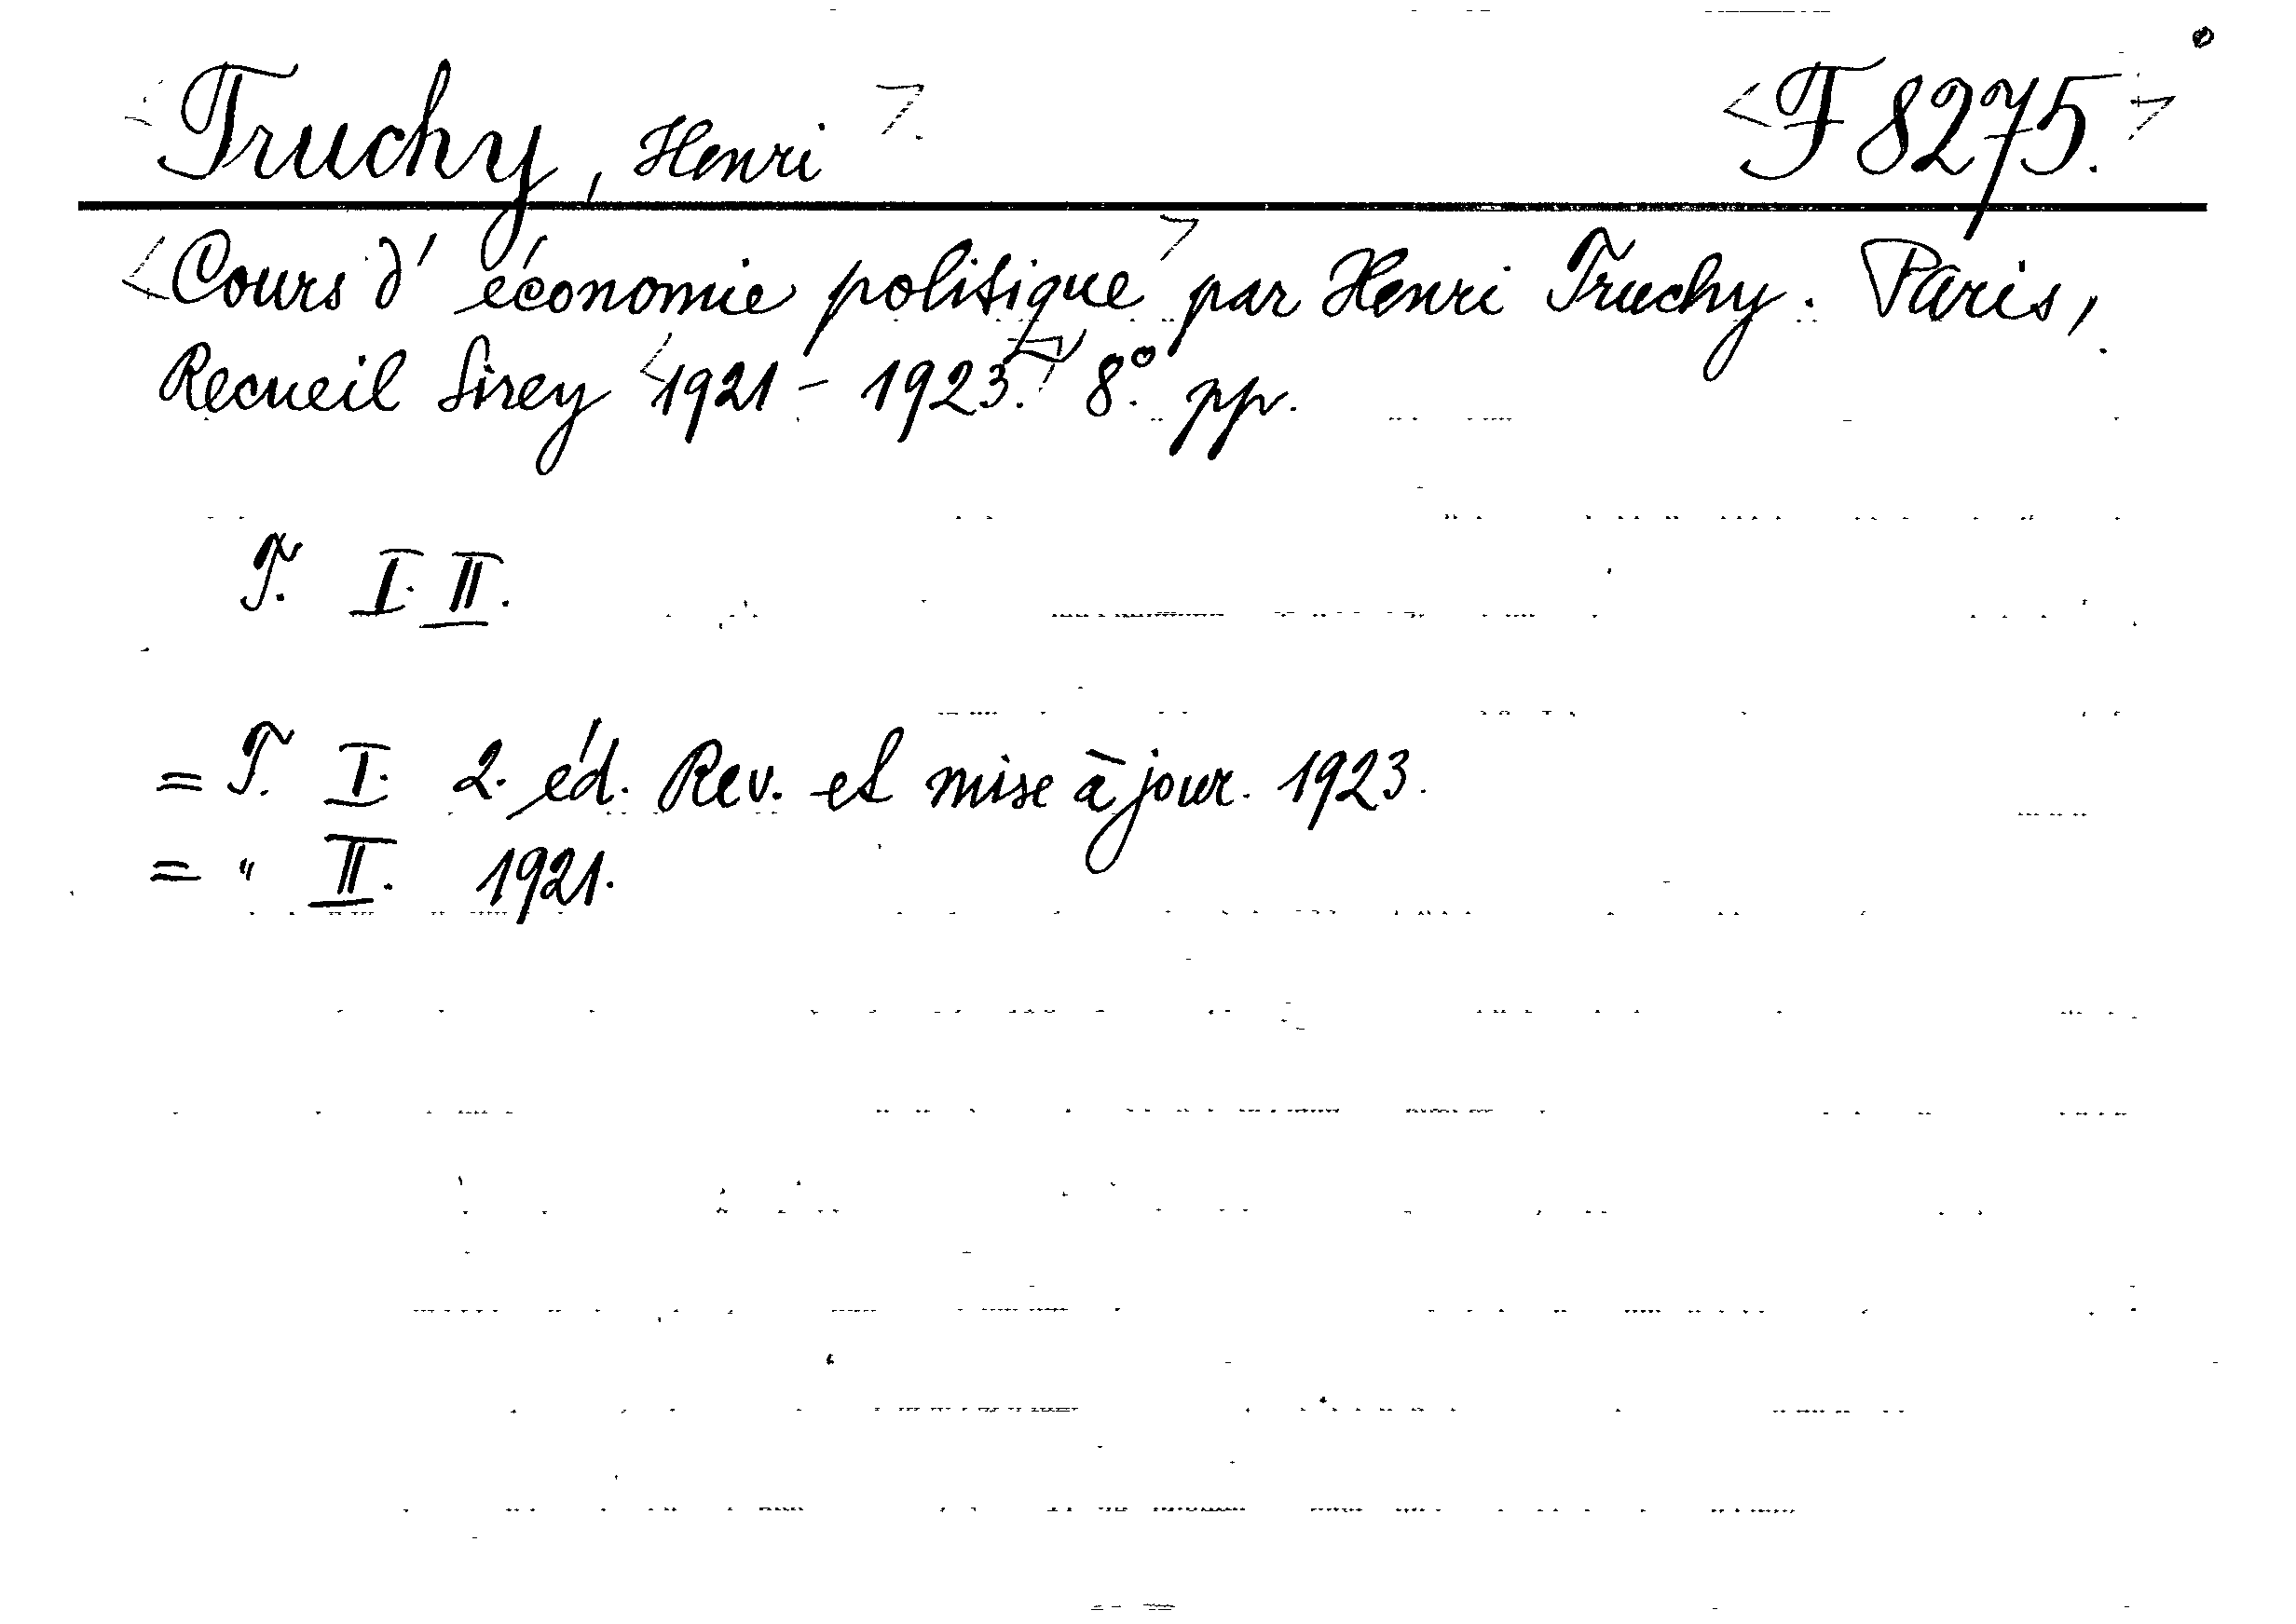 <Truchy, Henri> <F 8275.>
<Cours d'économie politique> par Henri Truchy. Paris,
Recueil Sirey <1921 - 1923.> 8.° pp.
T. I. II.
= T. I. 2. éd. Rev. et mise à jour. 1923.
= " II. 1921.